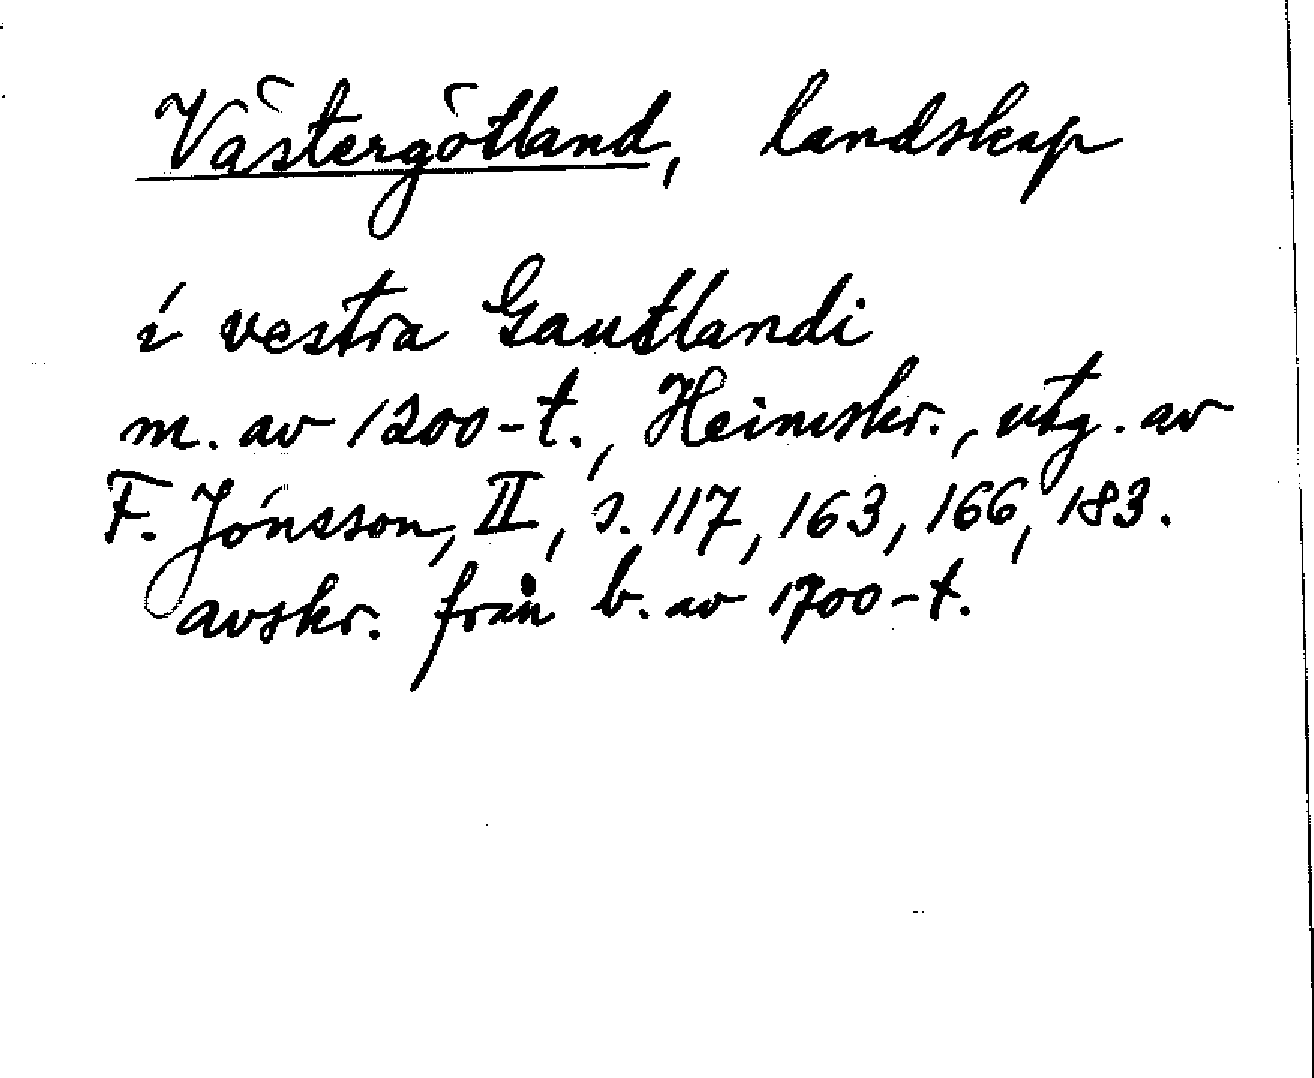 Västergötland, landskap
í vestra Gautlandi
m. av 1200-t., Heimskr., utg. av
F. Jónsson, II, s. 117, 163, 166, 183.
avskr. från b. av 1700-t.